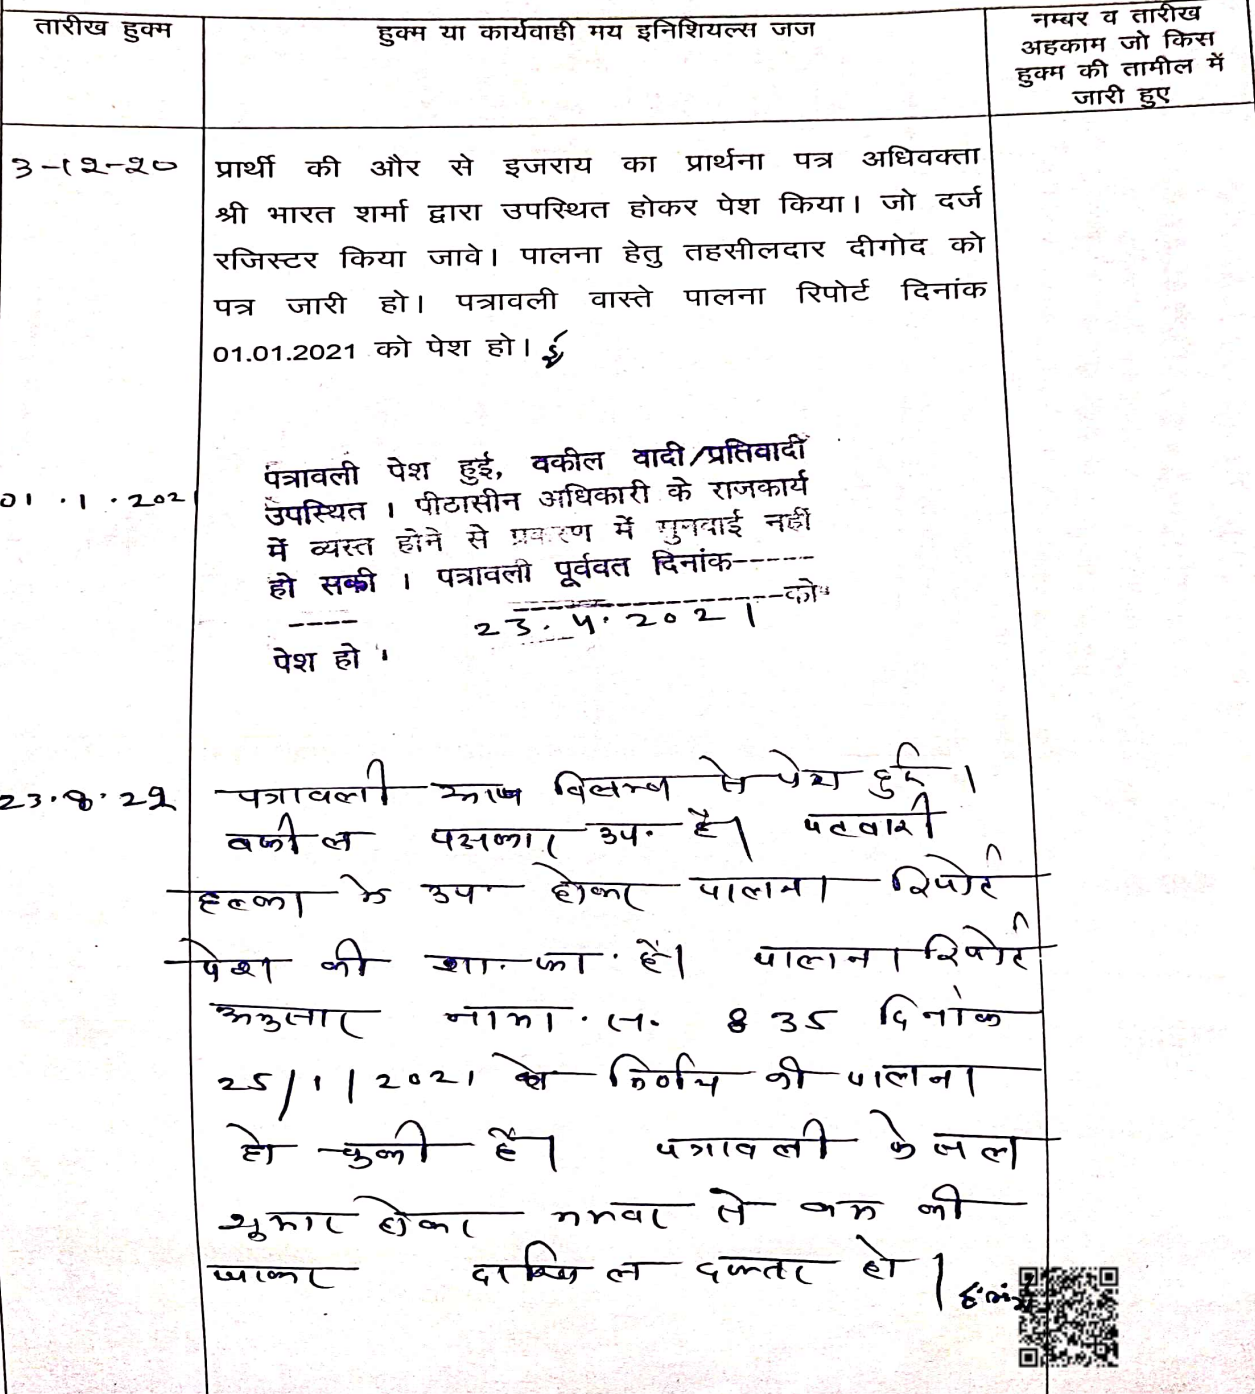 तारीख हुक्म
हुक्म या कार्यवाही मय इनिशियल्स जज
नम्बर व तारीख
अहकाम जो किस
हुक्म की तामील में
जारी हुए
3-12-20
प्रार्थी की और से इजराय का प्रार्थना पत्र अधिवक्ता
श्री भारत शर्मा द्वारा उपस्थित होकर पेश किया। जो दर्ज
रजिस्टर किया जावे। पालना हेतु तहसीलदार दीगोद को
पत्र जारी हो। पत्रावली वास्ते पालना रिपोर्ट दिनांक
01.01.2021 को पेश हो।
01.1.202
पत्रावली पेश हुई, वकील वादी/प्रतिवादी
उपस्थित । पीठासीन अधिकारी के राजकार्य
में व्यस्त होने से प्रकरण में सुनवाई नहीं
हो सकी । पत्रावली पूर्ववत दिनांक------
---- ----------------को
23.4.2021
पेश हो ।
23.8.22
पत्रावली आज विलम्ब से पेश हुई ।
वकील पक्षकार उप. है। पटवारी
हल्का के उप होकर पालना रिपोर्ट
पेश की शा. फा. है। पालना रिपोर्ट
अनुसार नामा. स. 835 दिनांक
25/1/2021 से निर्णय की पालना
हो चुकी है। पत्रावली फैसल
शुमार होकर नम्बर से कम की
जाकर दाखिल दफ्तर हो।